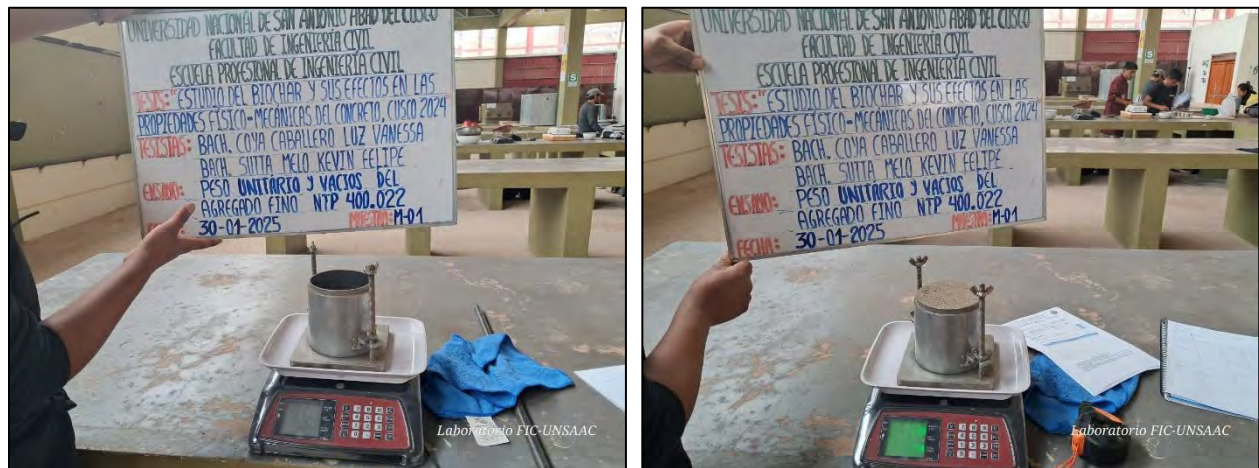 UNIVERSIDAD NACIONAL DE SAN ANTONIO ABAD DEL CUSCO
FACULTAD DE INGENIERÍA CIVIL
ESCUELA PROFESIONAL DE INGENIERÍA CIVIL
TESIS: "ESTUDIO DEL BIOCHAR Y SUS EFECTOS EN LAS
PROPIEDADES FÍSICO-MECÁNICAS DEL CONCRETO, CUSCO 2024
TESISTAS: BACH. COYA CABALLERO LUZ VANESSA
BACH. SUTTA MELO KEVIN FELIPE
ENSAYO: PESO UNITARIO Y VACIOS DEL
AGREGADO FINO NTP 400.022
MUESTRA: M-01
30-01-2025
Laboratorio FIC-UNSAAC
UNIVERSIDAD NACIONAL DE SAN ANTONIO ABAD DEL CUSCO
FACULTAD DE INGENIERÍA CIVIL
ESCUELA PROFESIONAL DE INGENIERÍA CIVIL
TESIS: "ESTUDIO DEL BIOCHAR Y SUS EFECTOS EN LAS
PROPIEDADES FÍSICO-MECÁNICAS DEL CONCRETO, CUSCO 2024
TESISTAS: BACH. COYA CABALLERO LUZ VANESSA
BACH. SUTTA MELO KEVIN FELIPE
ENSAYO: PESO UNITARIO Y VACIOS DEL
AGREGADO FINO NTP 400.022
MUESTRA: M-01
FECHA: 30-01-2025
S
Laboratorio FIC-UNSAAC